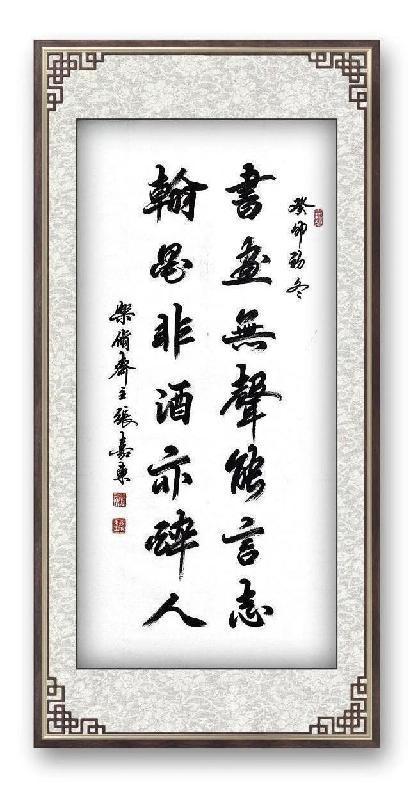 癸卯初冬
書畫無聲能言志
翰墨非酒亦醉人
樂脩齋主張嘉東